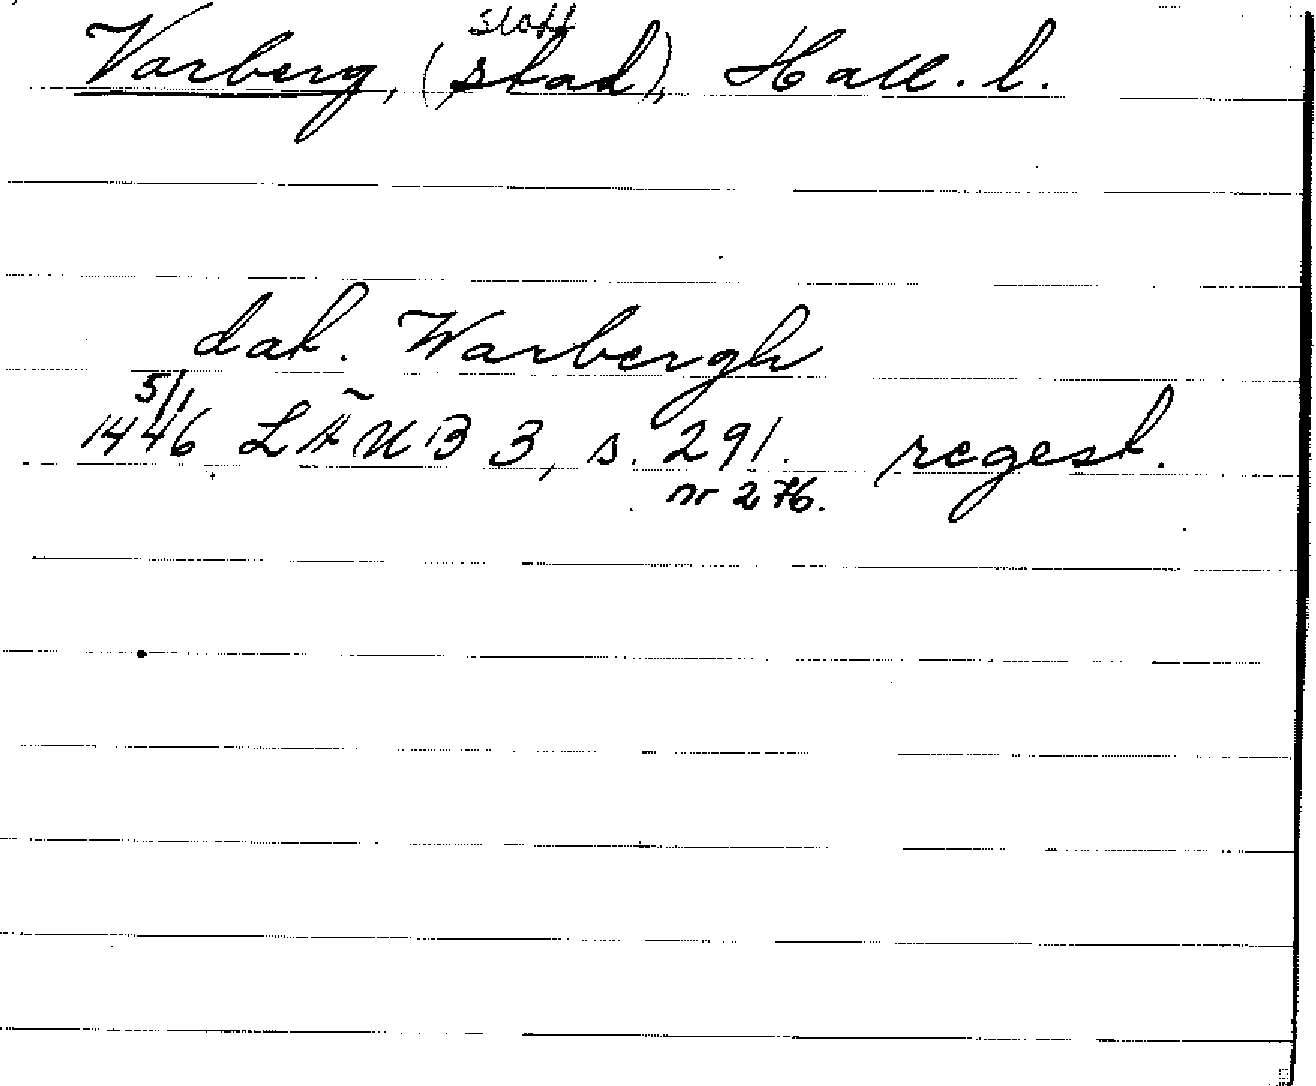 slott
Varberg, (stad), Hall. l.
dat. Warbergh
5/1
1446 LÄUB 3, s. 291. regest.
nr 276.